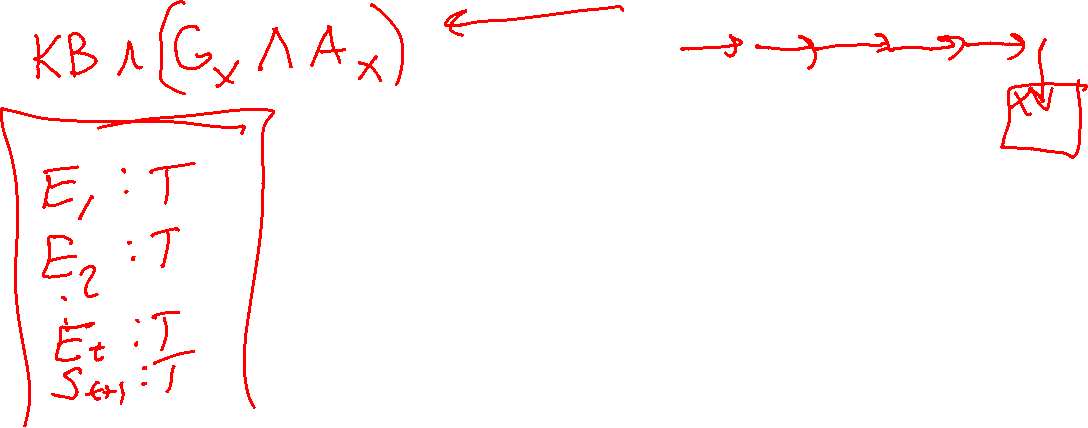 KB ∧ (G_x ∧ A_x)
X
E_1 : T
E_2 : T
:
E_t : T
S_{t+1} : T